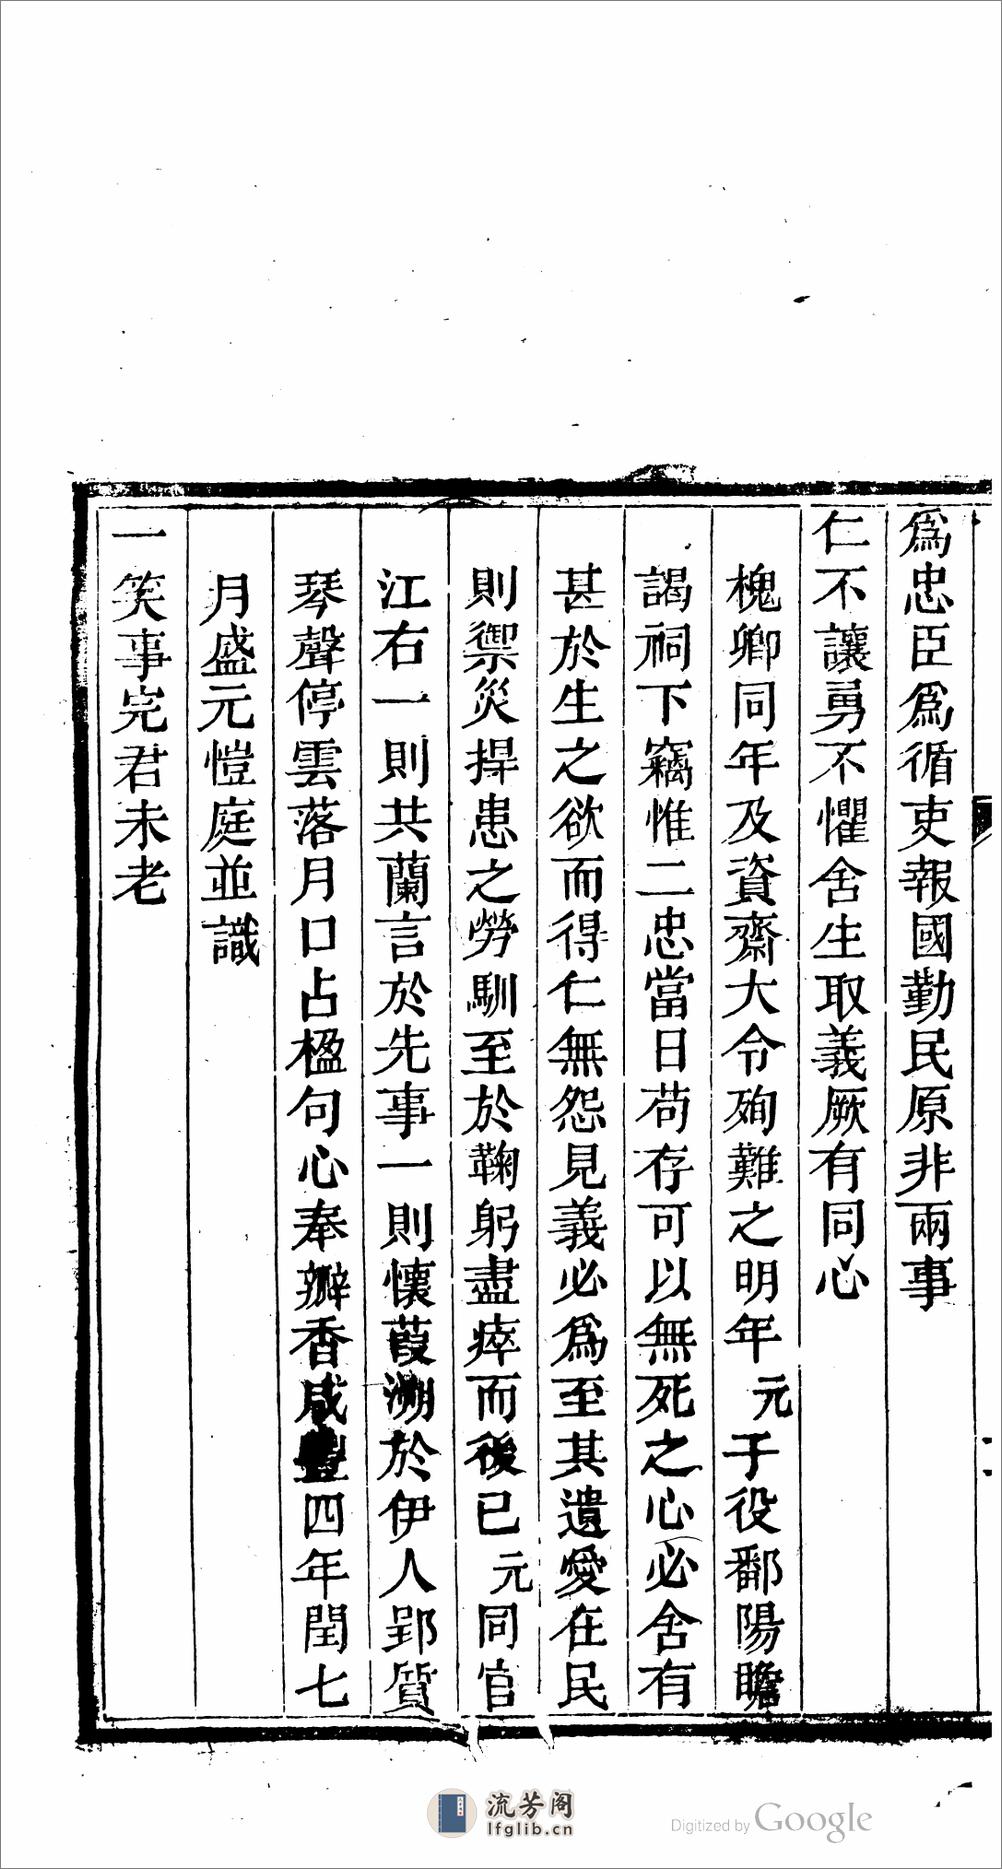 爲忠臣爲循吏報國勤民原非兩事
仁不讓勇不懼舍生取義厥有同心
槐卿同年及資齋大令殉難之明年元于役鄱陽瞻
謁祠下竊惟二忠當日苟存可以無死之心必舍有
甚於生之欲而得仁無怨見義必爲至其遺愛在民
則禦災捍患之勞馴至於鞠躬盡瘁而後已元同官
江右一則共蘭言於先事一則懷葭溯於伊人郢質
琴聲停雲落月口占楹句心奉瓣香咸豐四年閏七
月盛元愷庭並識
一笑事完君未老
流芳阁
lfglib.cn
Digitized by Google